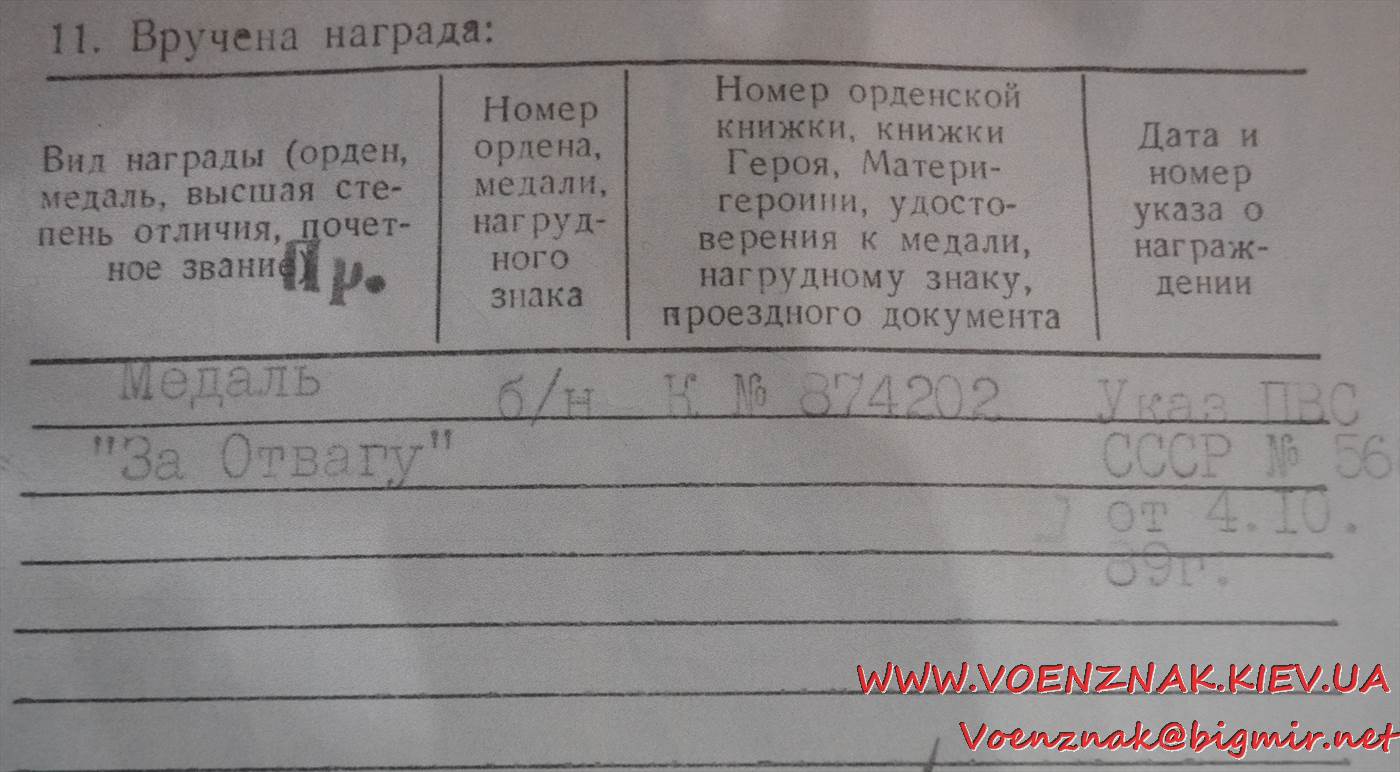 11. Вручена награда:
Вид награды (орден,
медаль, высшая сте-
пень отличия, почет-
ное звание)
Пр.
Номер
ордена,
медали,
нагруд-
ного
знака
Номер орденской
книжки, книжки
Героя, Матери-
героини, удосто-
верения к медали,
нагрудному знаку,
проездного документа
Дата и
номер
указа о
награж-
дении
Медаль
"За Отвагу"
б/н
К № 874202
Указ ПВС
СССР № 56
от 4.10.
89г.
WWW.VOENZNAK.KIEV.UA
Voenznak@bigmir.net